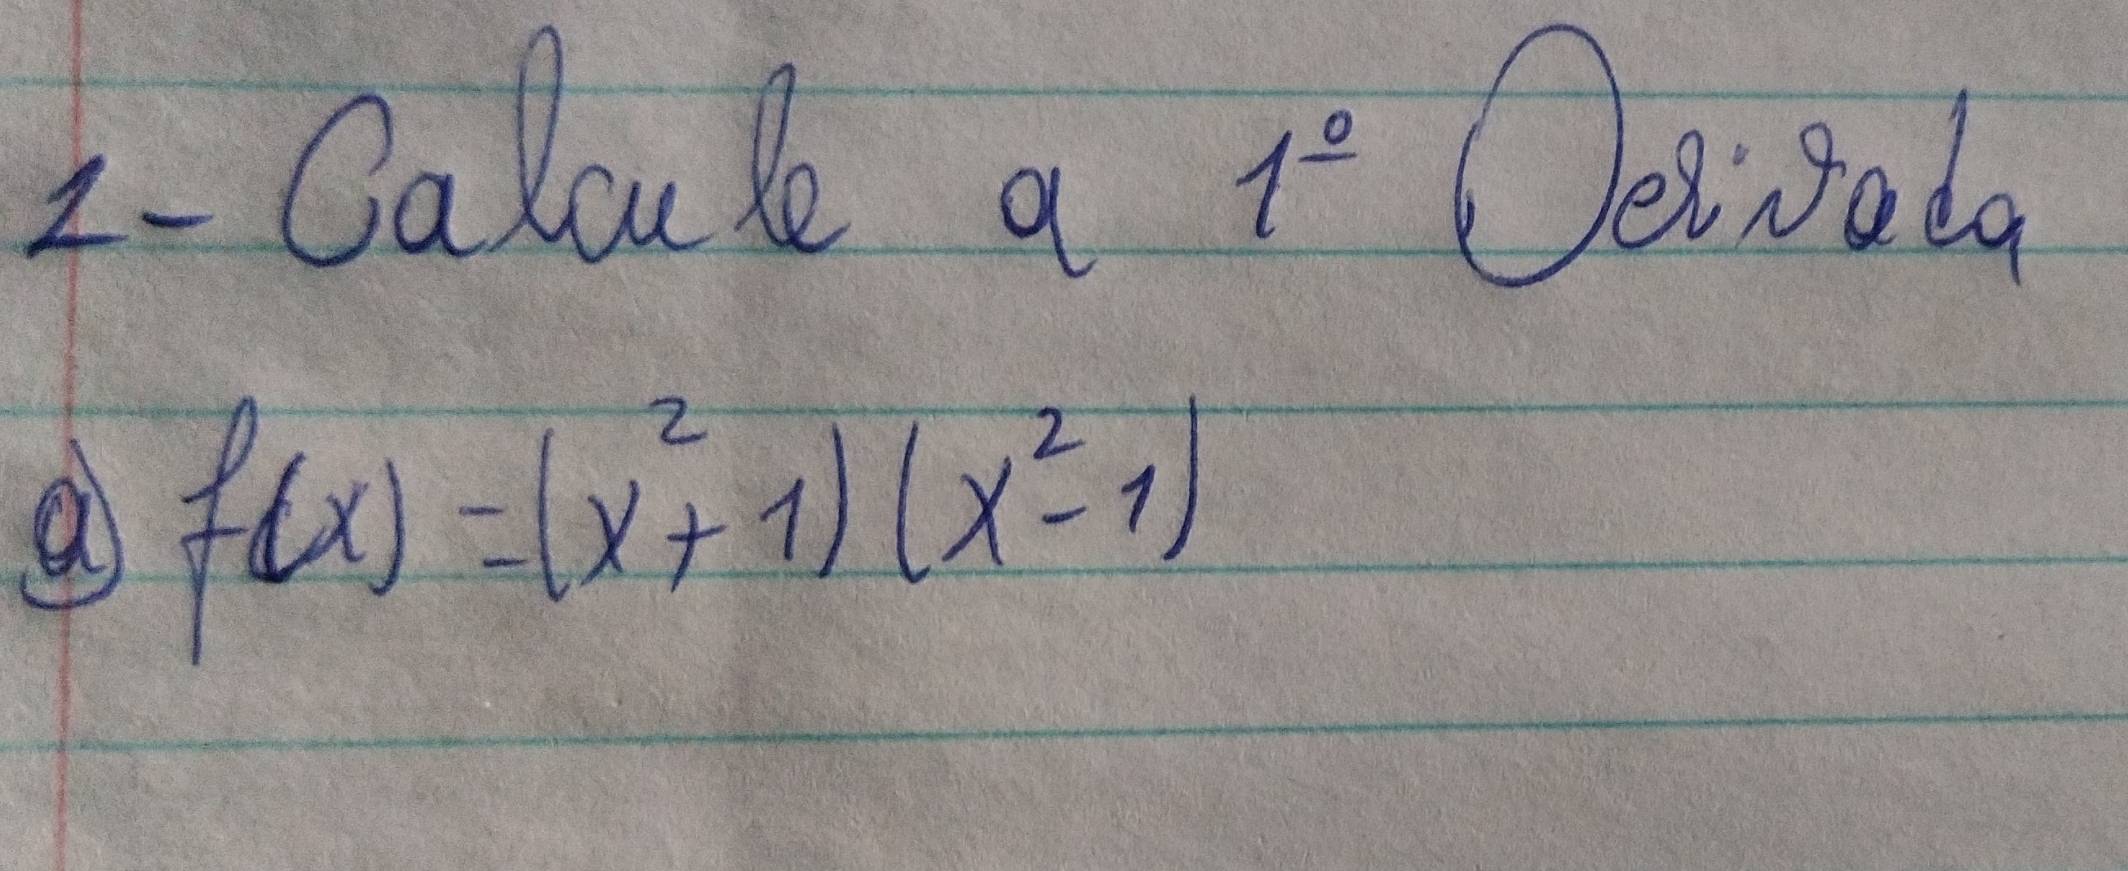 1- Calcule a 1º Derivada
a) f(x) = (x² + 1) (x² - 1)